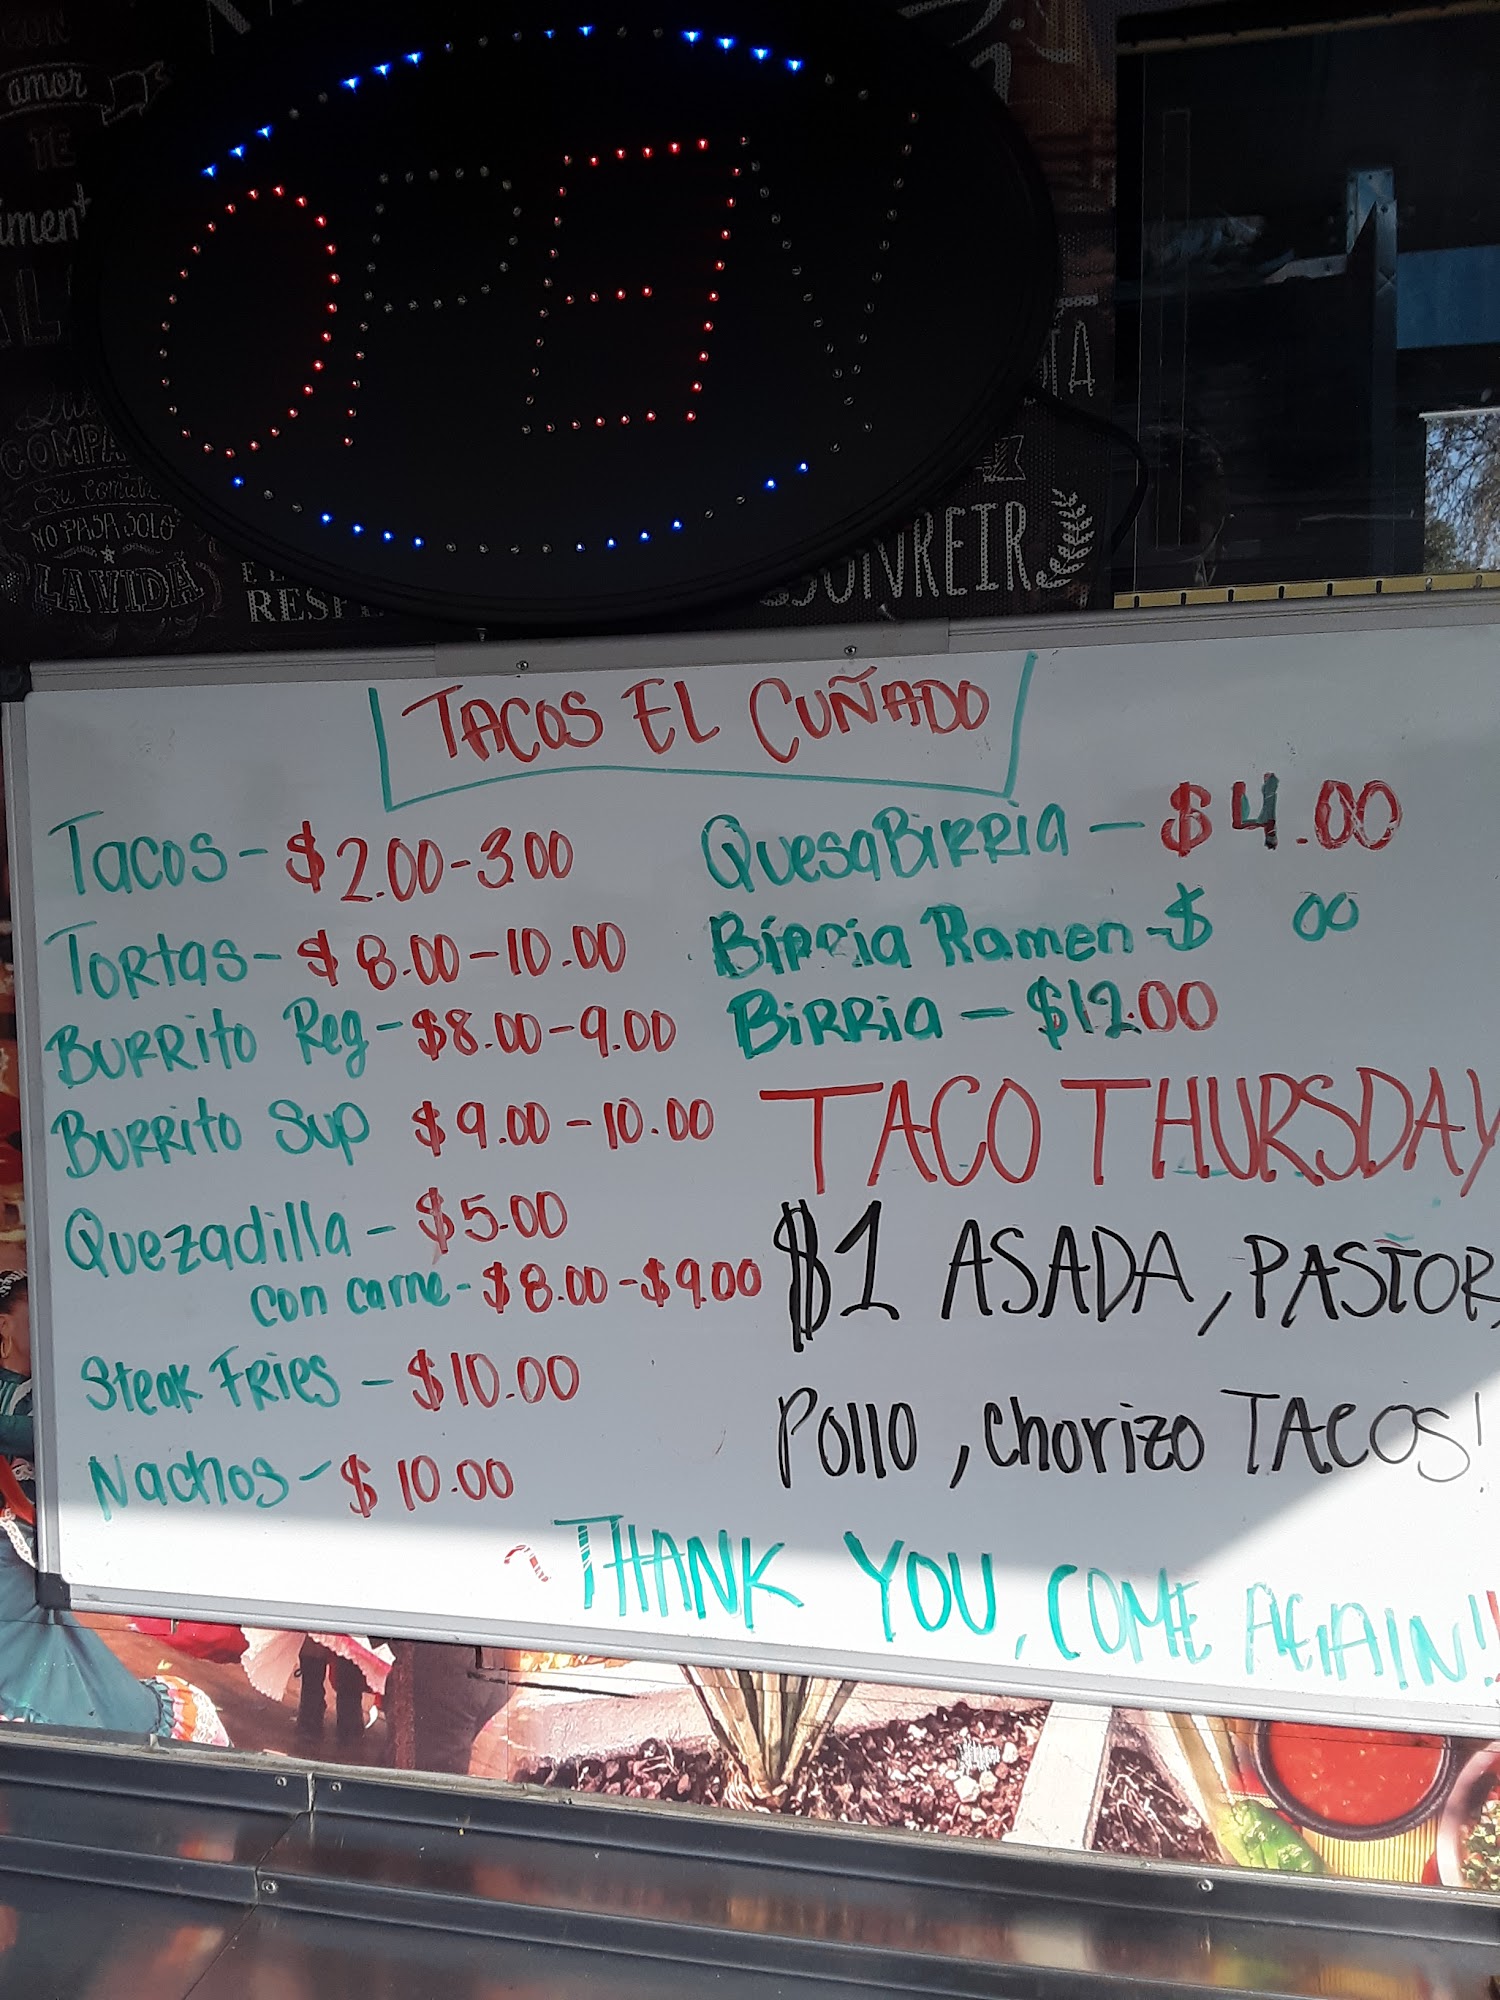 CON
amor
TE
COMPA
NO PASA SOLO
LA VIDA
RESP
SONREIR
OPEN
TACOS EL CUÑADO
Tacos - $2.00-3.00
Tortas - $8.00-10.00
Burrito Reg - $8.00-9.00
Burrito Sup $9.00-10.00
Quezadilla - $5.00
con carne - $8.00-$9.00
Steak Fries - $10.00
Nachos - $10.00
QuesaBirria - $4.00
Birria Ramen - $ 00
Birria - $12.00
TACO THURSDAY
$1 ASADA, PASTOR,
Pollo, Chorizo TACOS!
THANK YOU, COME AGAIN!!